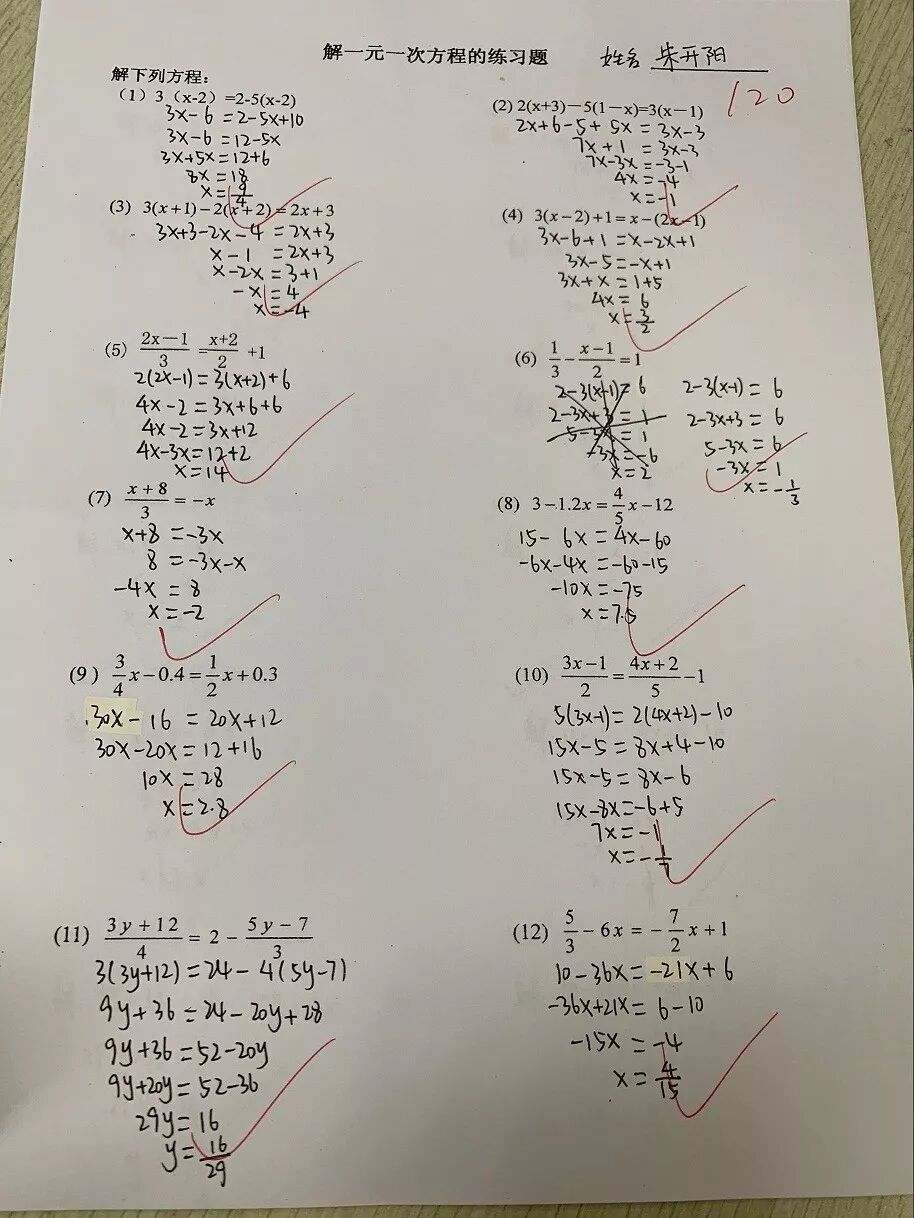 解一元一次方程的练习题 姓名 朱开阳
120
解下列方程：
（1）3（x-2）=2-5(x-2)
3x-6 = 2-5x+10
3x-6 = 12-5x
3x+5x = 12+6
8x = 18
x = 9/4
(2) 2(x+3)－5(1－x)=3(x－1)
2x+6-5+5x = 3x-3
7x+1 = 3x-3
7x-3x = -3-1
4x = -4
x = -1
(3) 3(x+1)－2(x+2)=2x+3
3x+3-2x-4 = 2x+3
x-1 = 2x+3
x-2x = 3+1
-x = 4
x = -4
(4) 3(x－2)+1=x－(2x－1)
3x-6+1 = x-2x+1
3x-5 = -x+1
3x+x = 1+5
4x = 6
x = 3/2
(5) (2x－1)/3 = (x+2)/2 +1
2(2x-1) = 3(x+2)+6
4x-2 = 3x+6+6
4x-2 = 3x+12
4x-3x = 12+2
x = 14
(6) 1/3 － (x－1)/2 = 1
2-3x+3 = 1
5-3x = 1
-3x = -6
x = 2
2-3(x-1) = 6
2-3x+3 = 6
5-3x = 6
-3x = 1
x = -1/3
(7) (x+8)/3 = －x
x+8 = -3x
8 = -3x-x
-4x = 8
x = -2
(8) 3－1.2x = 4/5 x－12
15-6x = 4x-60
-6x-4x = -60-15
-10x = -75
x = 7.5
(9) 3/4 x－0.4 = 1/2 x+0.3
30x-16 = 20x+12
30x-20x = 12+16
10x = 28
x = 2.8
(10) (3x－1)/2 = (4x+2)/5 －1
5(3x-1) = 2(4x+2)-10
15x-5 = 8x+4-10
15x-5 = 8x-6
15x-8x = -6+5
7x = -1
x = -1/7
(11) (3y+12)/4 = 2－(5y－7)/3
3(3y+12) = 24-4(5y-7)
9y+36 = 24-20y+28
9y+36 = 52-20y
9y+20y = 52-36
29y = 16
y = 16/29
(12) 5/3 － 6x = －7/2 x+1
10-36x = -21x+6
-36x+21x = 6-10
-15x = -4
x = 4/15